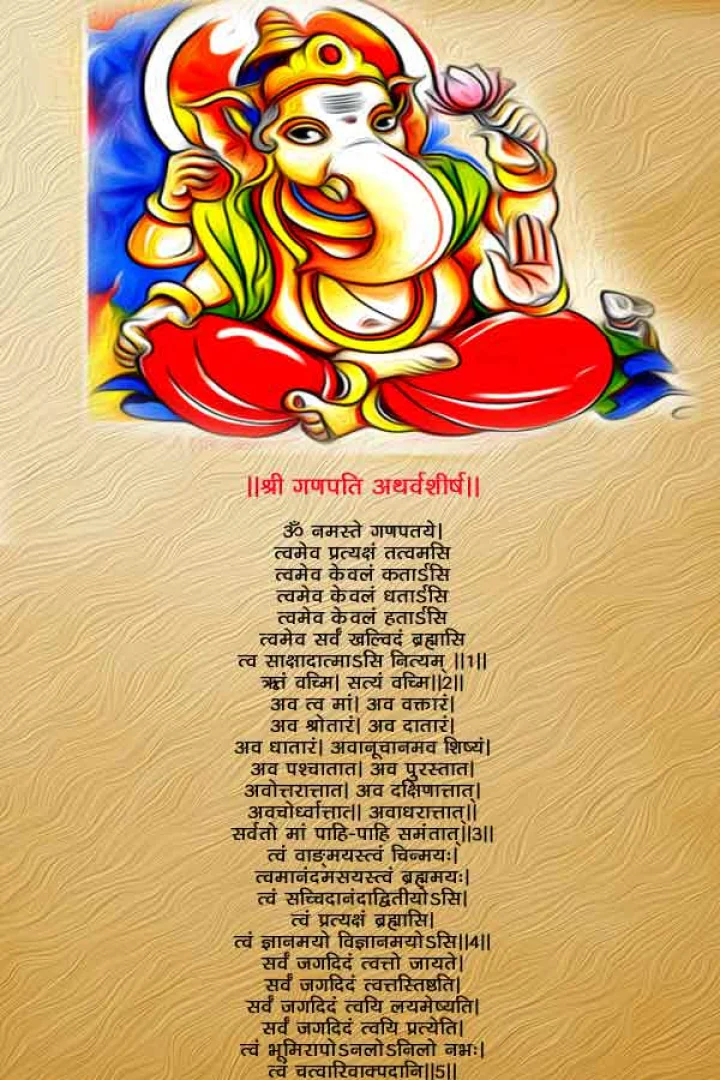 ||श्री गणपति अथर्वशीर्ष||
ॐ नमस्ते गणपतये|
त्वमेव प्रत्यक्षं तत्वमसि
त्वमेव केवलं कर्ताऽसि
त्वमेव केवलं धर्ताऽसि
त्वमेव केवलं हर्ताऽसि
त्वमेव सर्वं खल्विदं ब्रह्मासि
त्व साक्षादात्माऽसि नित्यम् ||1||
ऋतं वच्मि| सत्यं वच्मि||2||
अव त्व मां| अव वक्तारं|
अव श्रोतारं| अव दातारं|
अव धातारं| अवानूचानमव शिष्यं|
अव पश्चातात| अव पुरस्तात|
अवोत्तरात्तात| अव दक्षिणात्तात्|
अवचोर्ध्वात्तात|| अवाधरात्तात्||
सर्वतो मां पाहि-पाहि समंतात्||3||
त्वं वाङ्मयस्त्वं चिन्मयः|
त्वमानंदमसयस्त्वं ब्रह्ममयः|
त्वं सच्चिदानंदाद्वितीयोऽसि|
त्वं प्रत्यक्षं ब्रह्मासि|
त्वं ज्ञानमयो विज्ञानमयोऽसि||4||
सर्वं जगदिदं त्वत्तो जायते|
सर्वं जगदिदं त्वत्तस्तिष्ठति|
सर्वं जगदिदं त्वयि लयमेष्यति|
सर्वं जगदिदं त्वयि प्रत्येति|
त्वं भूमिरापोऽनलोऽनिलो नभः|
त्वं चत्वारिवाक्पदानि||5||